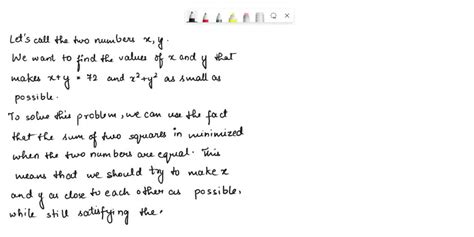 Let's call the two numbers x, y.
We want to find the values of x and y that
makes x+y = 72 and x²+y² as small as
possible.
To solve this problem, we can use the fact
that the sum of two squares in minimized
when the two numbers are equal. This
means that we should try to make x
and y as close to each other as possible,
while still satisfying the